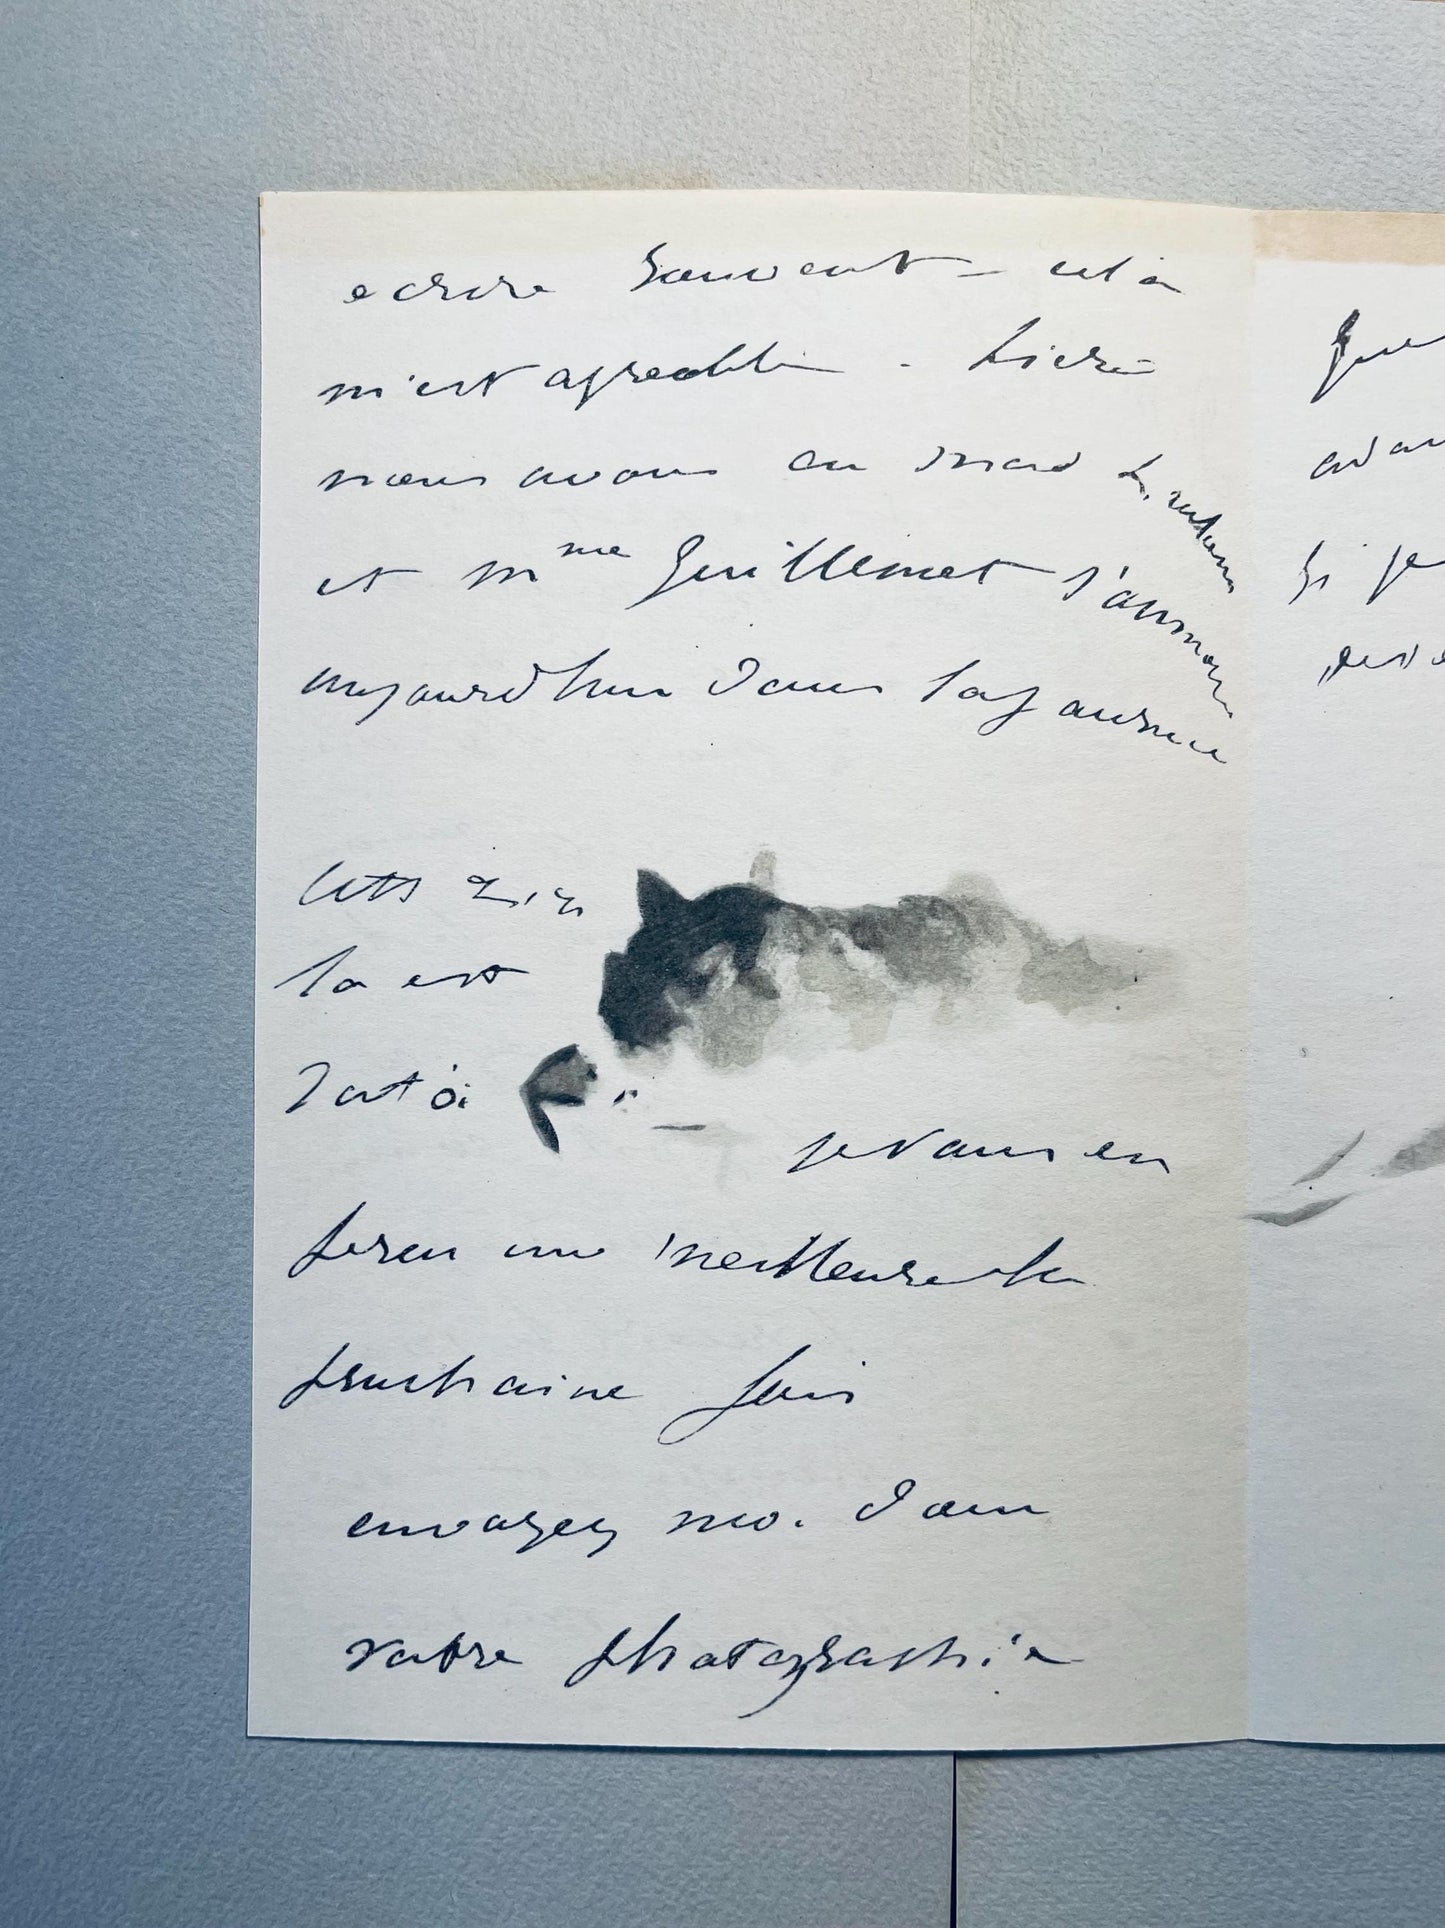 ecrire souvent - cela
m'est agreable . hier
nous avons eu Mad
et Mme Guillemet
aujourdhui dans la journee
cette Zizi
la est
je vous en
ferai une meilleure la
prochaine fois
envoyez moi donc
votre photographie
si je